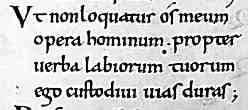 Ut non loquatur os meum
opera hominum. propter
uerba labiorum tuorum
ego custodiui uias duras;